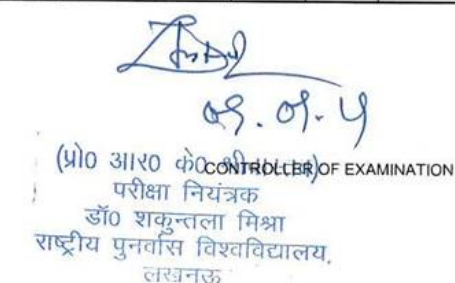 (प्रो0 आर0 के0 CONTROLLER OF EXAMINATION
परीक्षा नियंत्रक
डॉ0 शकुन्तला मिश्रा
राष्ट्रीय पुनर्वास विश्वविद्यालय,
लखनऊ